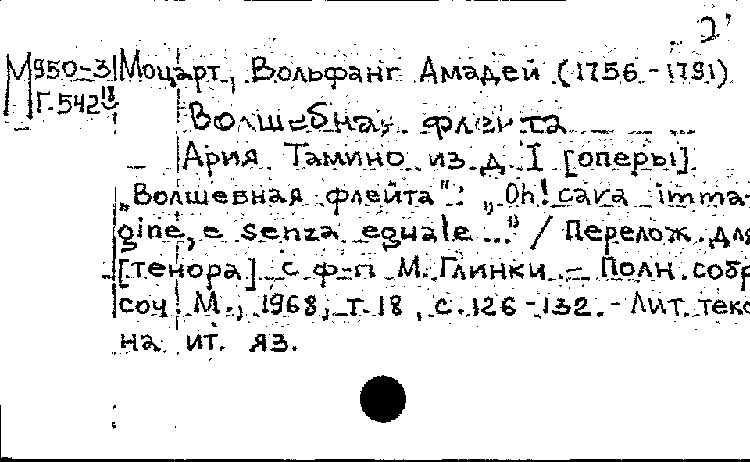 М950-3 Моцарт, Вольфанг Амадей (1756-1791)
Г.542
Волшебная флейта
Ария Тамино из д. I [оперы]
„Волшевная флейта": „Oh! cara imma-
gine, e senza eguale ..." / Перелож. для
[тенора] с ф-п М. Глинки. – Полн. собр
соч. М., 1968, т. 18, с. 126-132. - Лит. текс
на ит. яз.